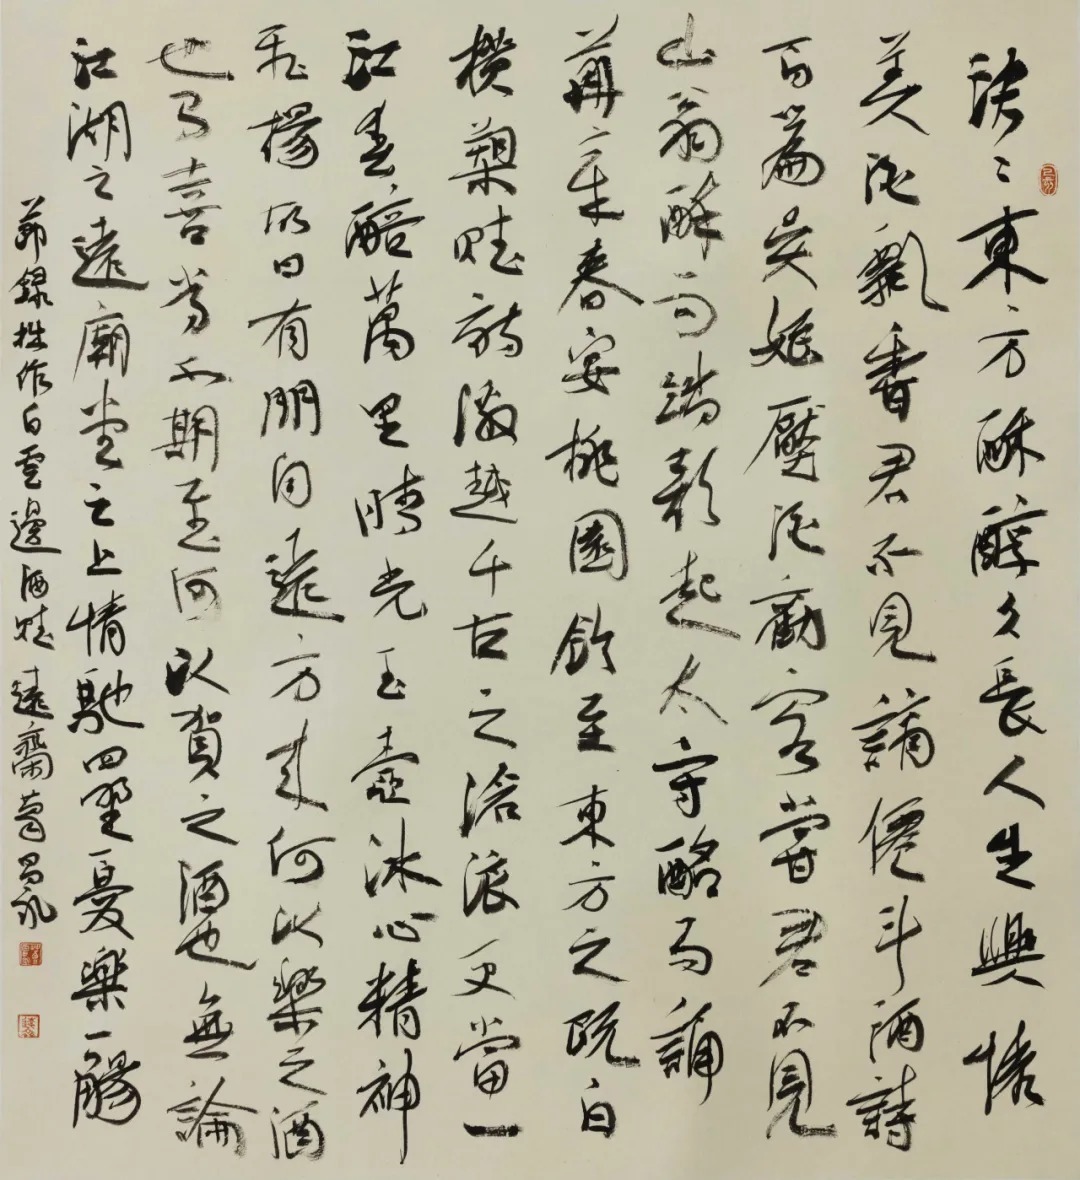 泱〻東方酥醇久長人生興
美酒飄香君不見誦僊斗酒詩
百篇吳姬壓酒勸客嘗君不見
山翁醉而起太守酩而誦
章春宴桃園飲至東方之既白
橫槊賦詩激越千古之滄浪更當一
江春醅萬里晴光玉壺冰心精神
飛揚故曰有朋自遠方來何以樂之酒
也喜當不期至何以賀之酒也無論
江湖之遠廟堂之上情馳四野憂樂一觴
節錄拙作白雲邊酒賦 遠齋葛昌永